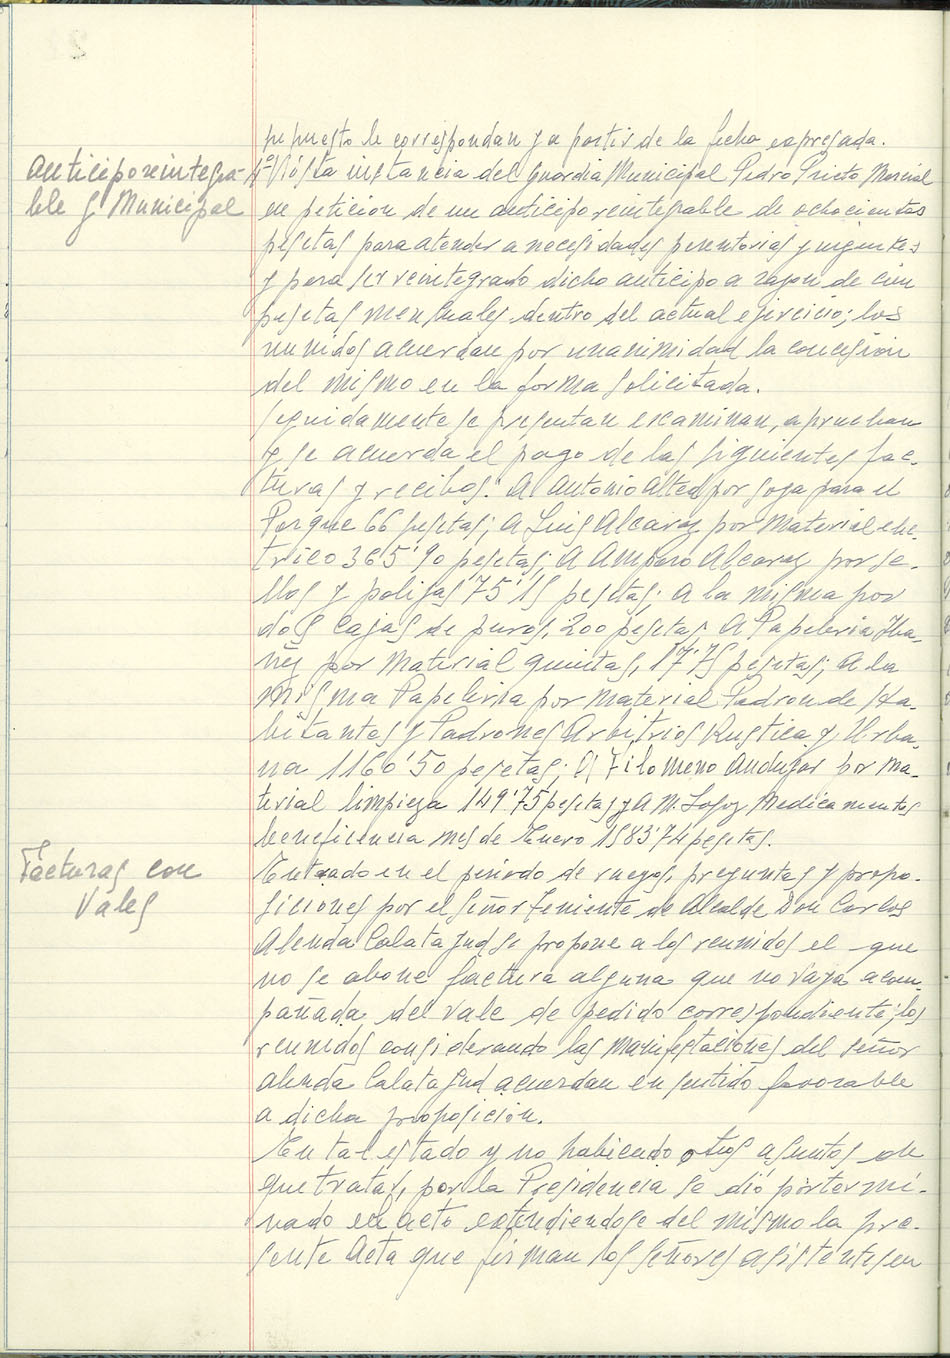 pupuesto le correspondan y a partir de la fecha expresada.
Anticipo reintegra-
ble G Municipal
4º Vista instancia del Guardia Municipal Pedro Prieto Marcial
en peticion de un anticipo reintegrable de ochocientas
pesetas para atender a necesidades perentorias y urgentes
y para ser reintegrado dicho anticipo a razon de cien
pesetas mensuales dentro del actual ejercicio; los
reunidos acuerdan por unanimidad la concesion
del mismo en la forma solicitada.
Seguidamente se presentan examinan, aprueban
y se acuerda el pago de las siguientes fac-
turas y recibos: A Antonio Alted por soga para el
Parque 66 pesetas; A Luis Alcaraz por Material elec-
trico 365'90 pesetas; A Amparo Alcaraz por se-
llos y polizas 75'15 pesetas; A la misma por
dos cajas de puros, 200 pesetas; A Papeleria Iba-
ñez por Material quintas, 17'75 pesetas; A la
misma Papeleria por Material Padron de Ha-
bitantes y Padrones Arbitrios Rustica y Urba-
na 1160'50 pesetas; A Filomeno Andujar por Ma-
terial limpieza 149'75 pesetas y A M. Medicamentos
beneficencia mes de Enero 1583'74 pesetas.
Facturas con
Vales
Entrado en el periodo de ruegos, preguntas y propo-
siciones por el Señor Teniente de Alcalde Don Carlos
Alenda Calatayud se propone a los reunidos el que
no se abone factura alguna que no vaya acom-
pañada del vale de pedido correspondiente; los
reunidos considerando las manifestaciones del Señor
Alenda Calatayud acuerdan en sentido favorable
a dicha proposición.
En tal estado y no habiendo otros asuntos de
que tratar, por la Presidencia se dió por termi-
nado el acto extendiendose del mismo la pre-
sente Acta que firman los Señores asistentes en